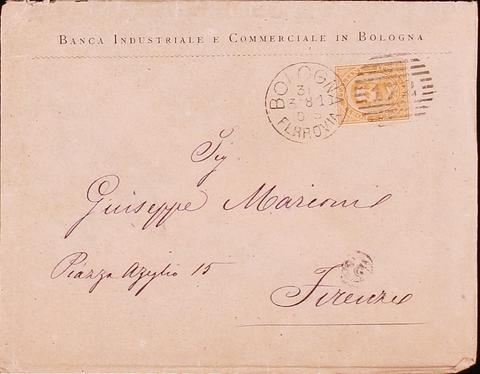 BANCA INDUSTRIALE E COMMERCIALE IN BOLOGNA
BOLOGNA
31
3-81
FERROVIA
Sig
Giuseppe Marconi
Piazza Azeglio 15
Firenze